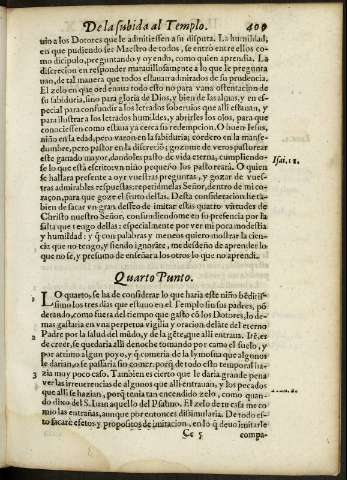 De la subida al Templo. 409
uio a los Dotores que le admitiessen a su disputa. La humildad,
en que pudiendo ser Maestro de todos, se entrò entre ellos co-
mo dicipulo, preguntando y oyendo, como quien aprendia. La
discrecion en responder marauillosamente a lo que le pregunta
uan, de tal manera que todos estauan admirados de su prudencia.
El zelo en que ordenaua todo esto no para vana ostentacion de
su sabiduria, sino para gloria de Dios, y bien de las almas, y en es-
pecial para confundir a los letrados soberuios que alli estauan, y
para ilustrar a los letrados humildes, y abrirles los ojos, para que
conociessen como estaua ya cerca su redencion. O buen Iesus,
niño en la edad, pero varon en la sabiduria; cordero en la manse-
dumbre, pero pastor en la discreciõ; gozome de veros pastorear
este ganado mayor, dandoles pasto de vida eterna, cumpliendo-
se lo que està escrito: vn niño pequeño los pastorearà. O quien
se hallara presente a oyr vuestras preguntas, y gozar de vues-
tras admirables respuestas: repetidmelas Señor, dentro de mi co-
raçon, para que goze el fruto dellas. Desta consideracion he tã-
bien de sacar vn gran desseo de imitar estas quatro virtudes de
Christo nuestro Señor, confundiendome en su presencia por la
falta que tengo dellas: especialmente por ver mi poca modestia
y humildad: y q̃ con palabras y meneos quiero mostrar la cien-
cia que no tengo, y siendo ignorãte, me desdeño de aprender lo
que no se, y presumo de enseñar a los otros lo que no aprendi.
Isai. 11.
Quarto Punto.
LO quarto, se ha de considerar lo que haria este niño bẽditis-
simo los tres dias que estuuo en el Templo sin sus padres, põ
derando, como fuera del tiempo que gastò cõ los Dotores, lo de-
mas gastaria en vna perpetua vigilia y oracion delãte del eterno
2 Padre por la salud del mũdo, y de la gẽte, que alli entraua. Itẽ, es
de creer, se quedaria alli de noche tomando por cama el suelo, y
por arrimo algun poyo, y q̃ comeria de la lymosna que algunos
le darian, o se passaria sin comer, porq̃ de todo esto temporal ha-
3 zia muy poco caso. Tambien es cierto que le daria grande pena
ver las irreuerencias de algunos que alli entrauan, y los pecados
que alli se hazian, porq̃ tenia tan encendido zelo, como quan-
do dixo del S. Iuan aquello del Psalmo. El zelo de tu casa me co-
mio las entrañas, aunque por entonces dissimularia. De todo es-
to sacarè efetos y propositos de imitacion, en lo q̃ deuo imitarle
Cc 5 compa-